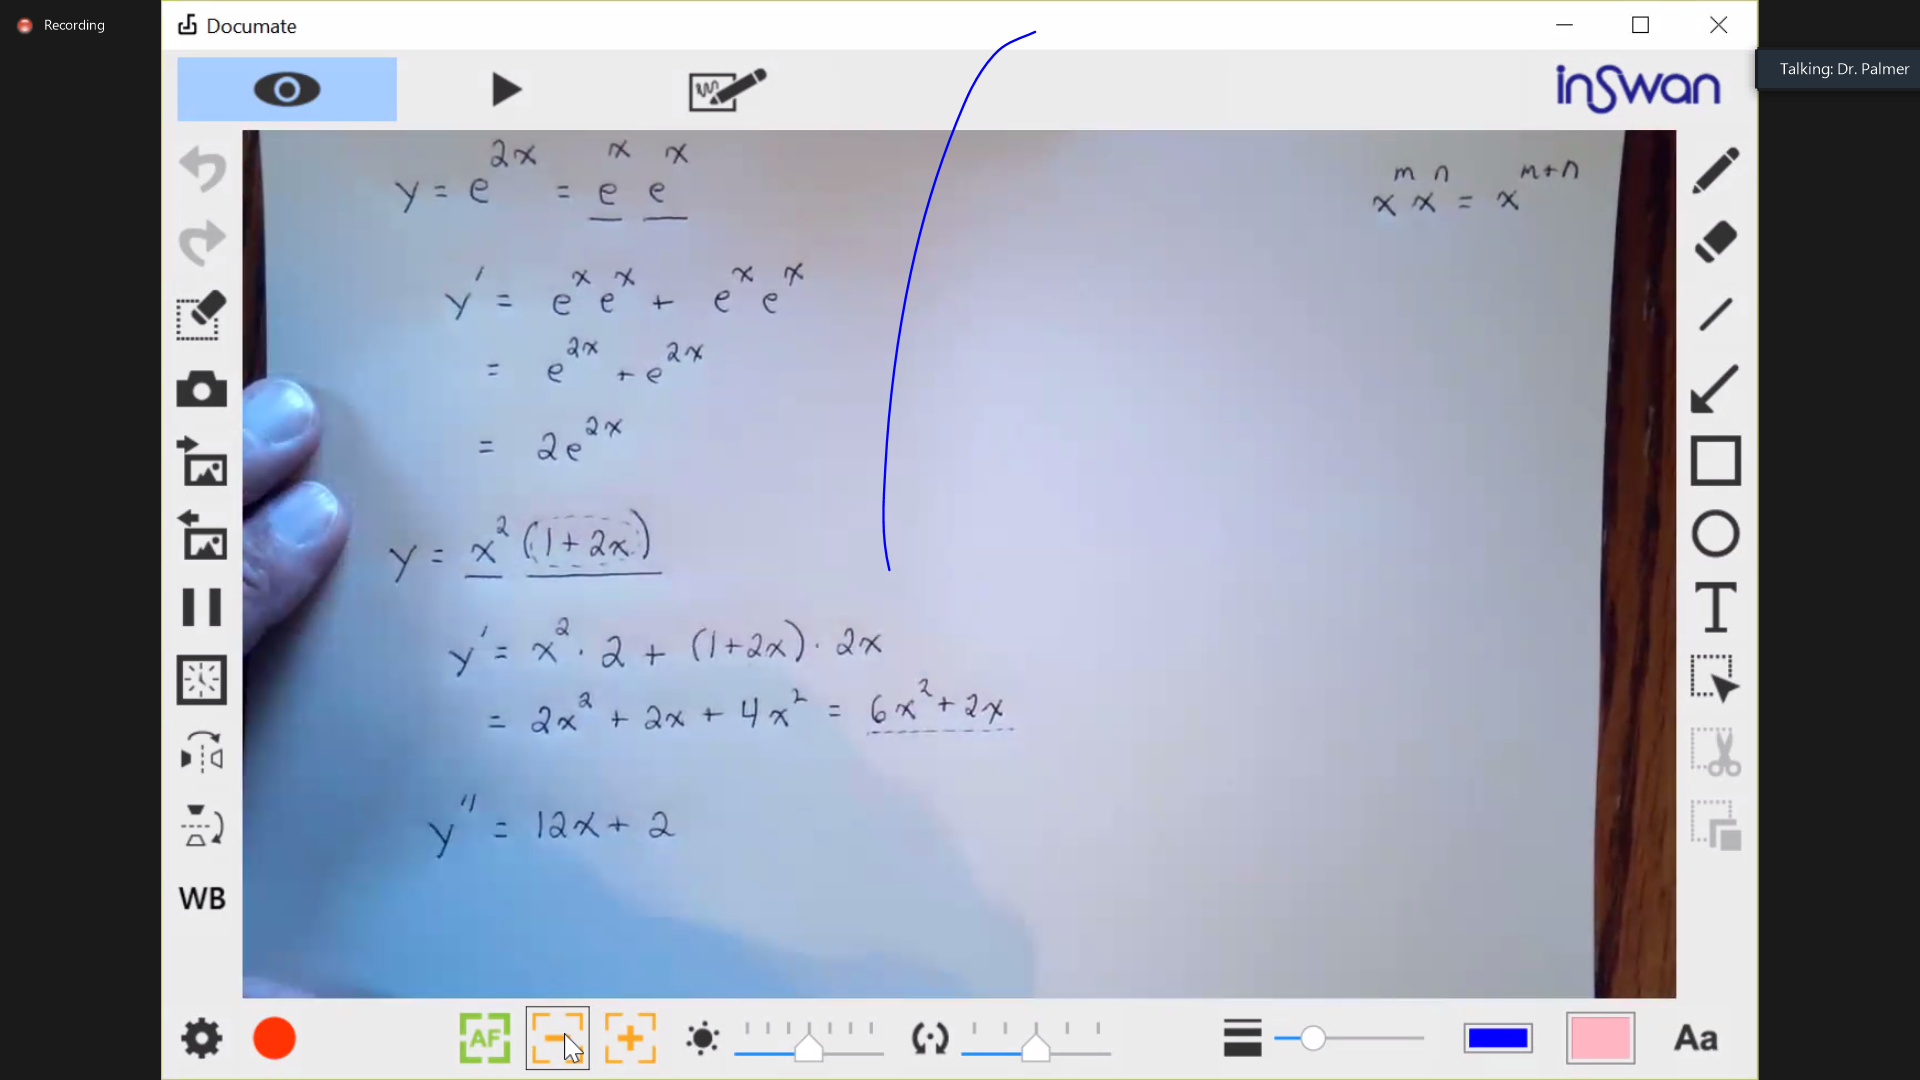 Recording
Documate
Talking: Dr. Palmer
inSwan
y = e^{2x} = e^x e^x
x^m x^n = x^{m+n}
y' = e^x e^x + e^x e^x
= e^{2x} + e^{2x}
= 2e^{2x}
y = x^2 (1 + 2x)
y' = x^2 · 2 + (1+2x) · 2x
= 2x^2 + 2x + 4x^2 = 6x^2 + 2x
y'' = 12x + 2
T
WB
AF
Aa